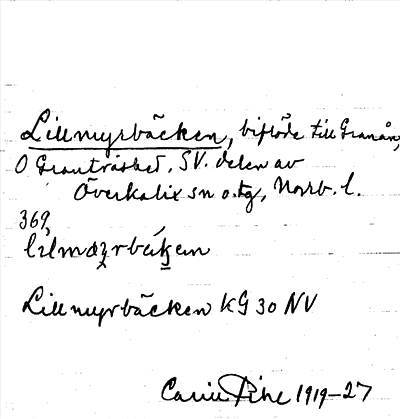 Lillmyrbäcken, biflöde till Granån,
O Granträsket, SV. delen av
Överkalix sn o. tg, Norrb. l.
369,
Lillmyrbäcken KG 30 NV
1919-27